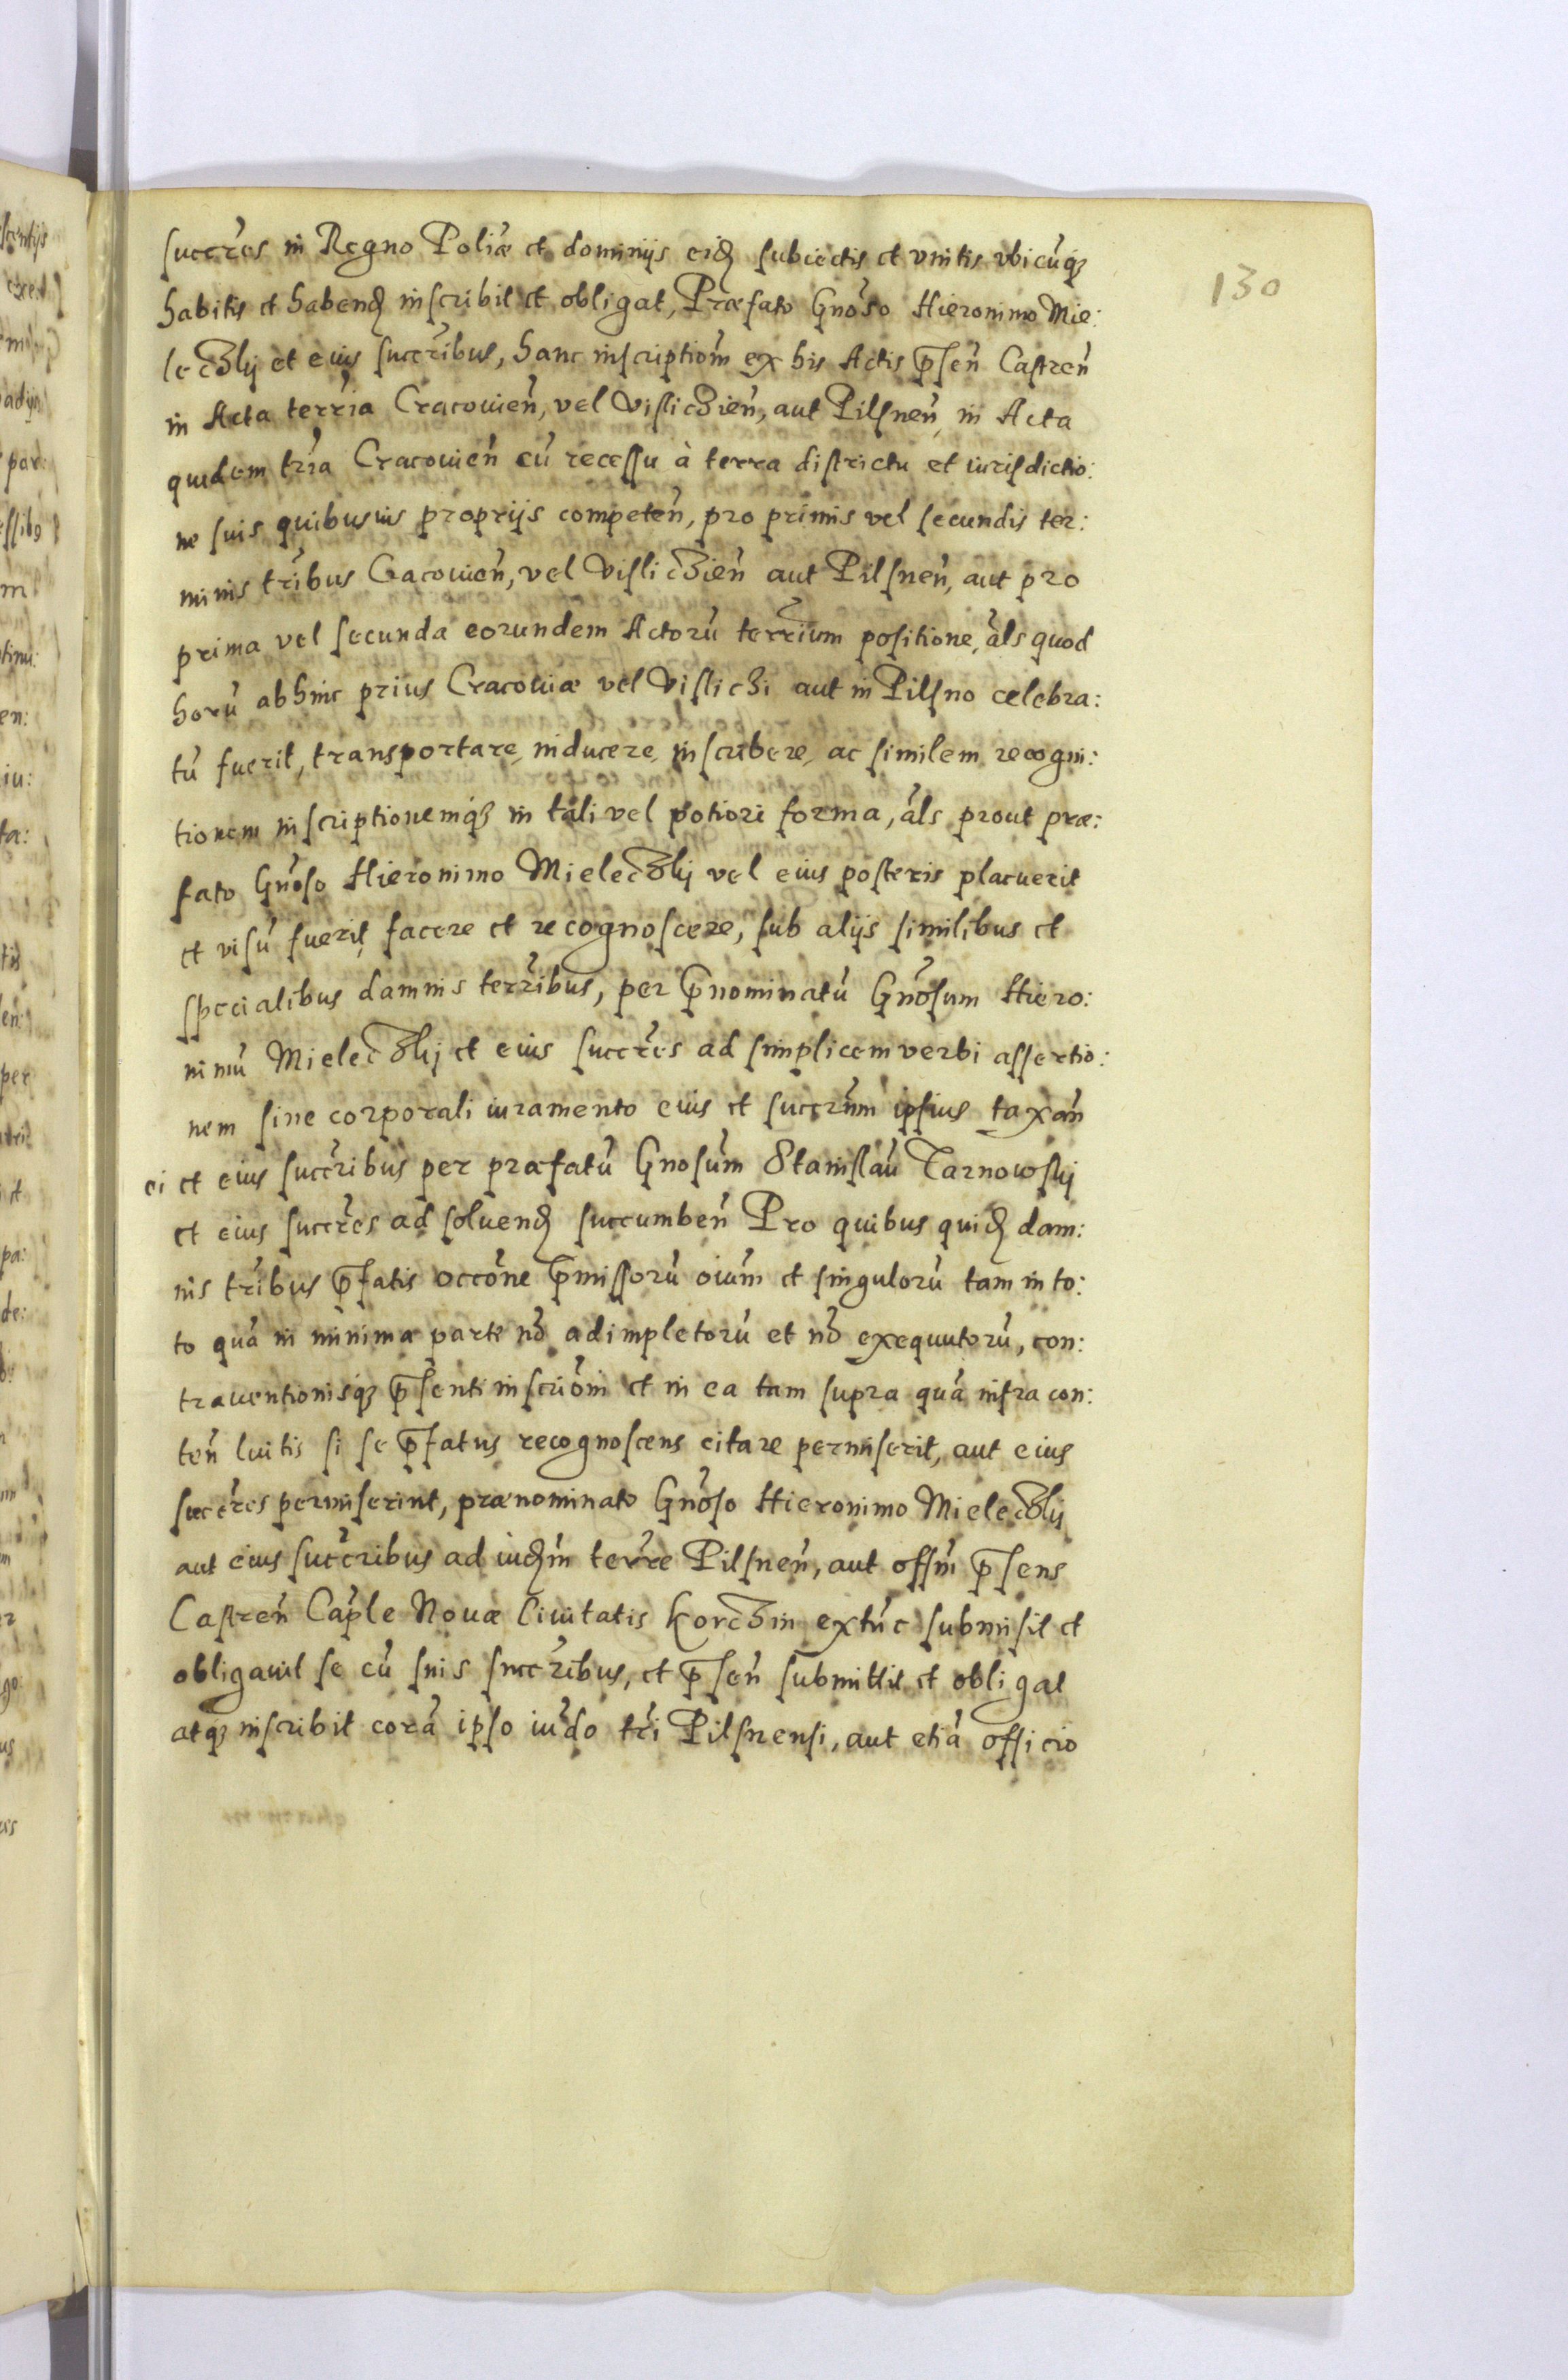 130
succ̃res in Regno Poliæ et dominijs eidẽ subiectis et vnitis vbicũq3
habitis et habendẽ inscribit et obligat, Præfato Gnõso Hieronimo Mie:
leczkij et eius succ̃ribus, hanc inscriptiom̃ ex his Actis p̃sen̄ Castren̄
in Acta terr̃ia Cracouien̄, vel Vislicien̄, aut Pilsnen̄, in Acta
quidem tr̃ia Cracouien̄ cũ recessu à terra districtu et iurisdictio:
ne suis quibusuis proprijs competen̄, pro primis vel secundis ter:
minis tr̃ibus Cacouien̄, vel Vislicien̄ aut Pilsnen̄, aut pro
prima vel secunda eorundem Actorũ terr̃ium positione, als̃ quod
horũ abhinc prius Cracouiæ vel Vislici aut in Pilsno celebra:
tũ fuerit, transportare, inducere, inscribere, ac similem recogni:
tionem inscriptionemq3 in tali vel potiori forma, als̃ prout præ:
fato Gnõso Hieronimo Mieleczkij vel eius posteris placuerit
et visũ fuerit, facere et recognoscere, sub alijs similibus et
specialibus damnis terr̃ibus, per p̃nominatũ Gnõsum Hiero:
nimũ Mieleczkij et eius succ̃res ad simplicem verbi assertio:
nem sine corporali iuramento eius et succr̃um ipsius taxan̄
ei et eius succ̃ribus per præfatũ Gnosum̃ Stanislaũ Tarnowskij
et eius succ̃res ad soluendẽ succumben̄ Pro quibus quidẽ dam:
nis tr̃ibus p̃fatis occõne p̃missorũ oium̃ et singulorũ tam in to:
to quã in minima parte nõ adimpletorũ et nõ exequutorũ, con:
trauentionisq3 p̃senti inscriõni et in ea tam supra quã infra con:
ten̄ luitis si se p̃fatus recognoscens citare permiserit, aut eius
succ̃res permiserint, prænominato Gnõso Hieronimo Mieleczkij
aut eius succ̃ribus ad iudm̃ terr̃e Pilsnen̄, aut offm̃ p̃sens
Castren̄ Cap̃le Nouæ Ciuitatis Korczin extũc submisit et
obligauit se cũ suis succ̃ribus, et p̃sen̄ submittit et obligat
atq3 inscribit corã ipso iud̃o tr̃i Pilsnensi, aut etiã officio